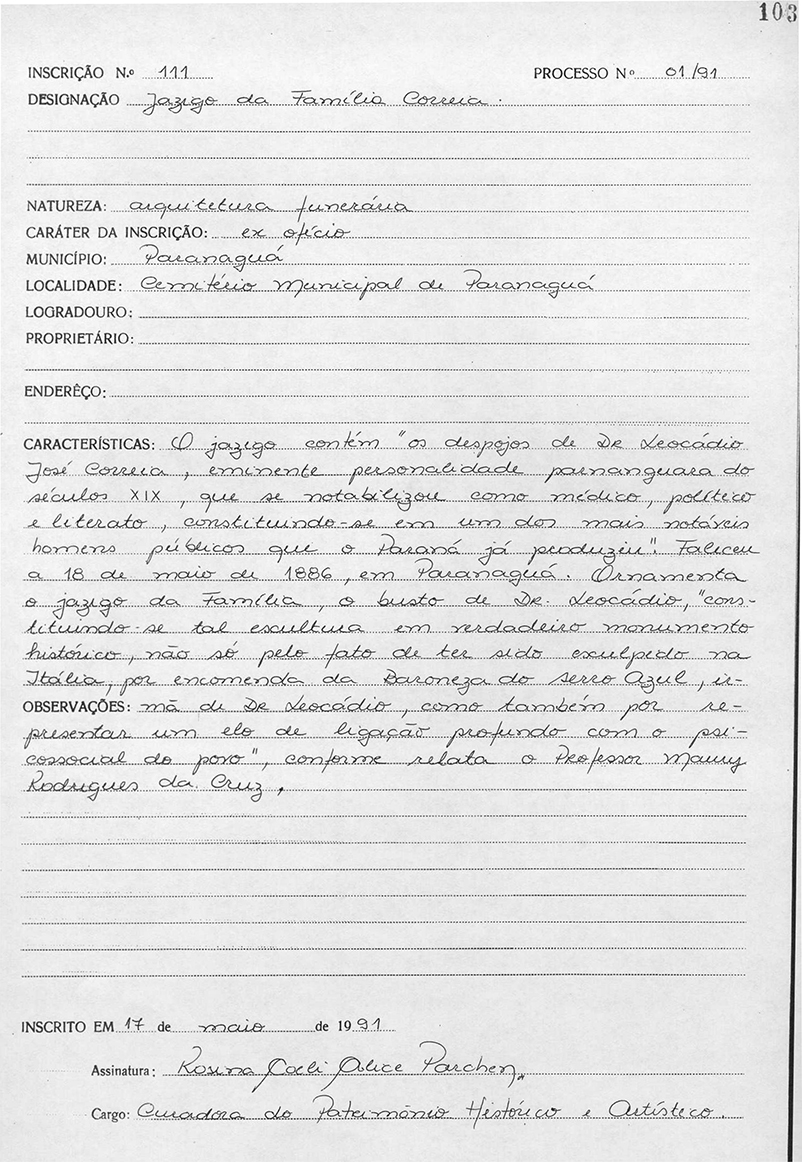 103
INSCRIÇÃO N.º 111 PROCESSO Nº 01/91
DESIGNAÇÃO Jazigo da Família Correia.
NATUREZA: arquitetura funerária
CARÁTER DA INSCRIÇÃO: ex ofício
MUNICÍPIO: Paranaguá
LOCALIDADE: Cemitério Municipal de Paranaguá
LOGRADOURO:
PROPRIETÁRIO:
ENDERÊÇO:
CARACTERÍSTICAS: O jazigo contém "os despojos de Dr Leocádio
José Correia, eminente personalidade parnanguara do
séculos XIX, que se notabilizou como médico, político
e literato, constituindo-se em um dos mais notáveis
homens públicos que o Paraná já produziu". Faliceu
a 18 de maio de 1886, em Paranaguá. Ornamenta
o jazigo da Família, o busto de Dr. Leocádio, "cons-
tituindo-se tal escultura em verdadeiro monumento
histórico, não só pelo fato de ter sido exculpido na
Itália, por encomenda da Baroneza do Serro Azul, ir-
OBSERVAÇÕES: mã de Dr Leocádio, como também por re-
presentar um elo de ligação profundo com o psi-
cossocial do povo", conforme relata o Professor Maury
Rodrigues da Cruz.
INSCRITO EM 17 de maio de 1991
Assinatura: Rosina Coeli Alice Parchen
Cargo: Curadora do Patrimônio Histórico e Artístico.